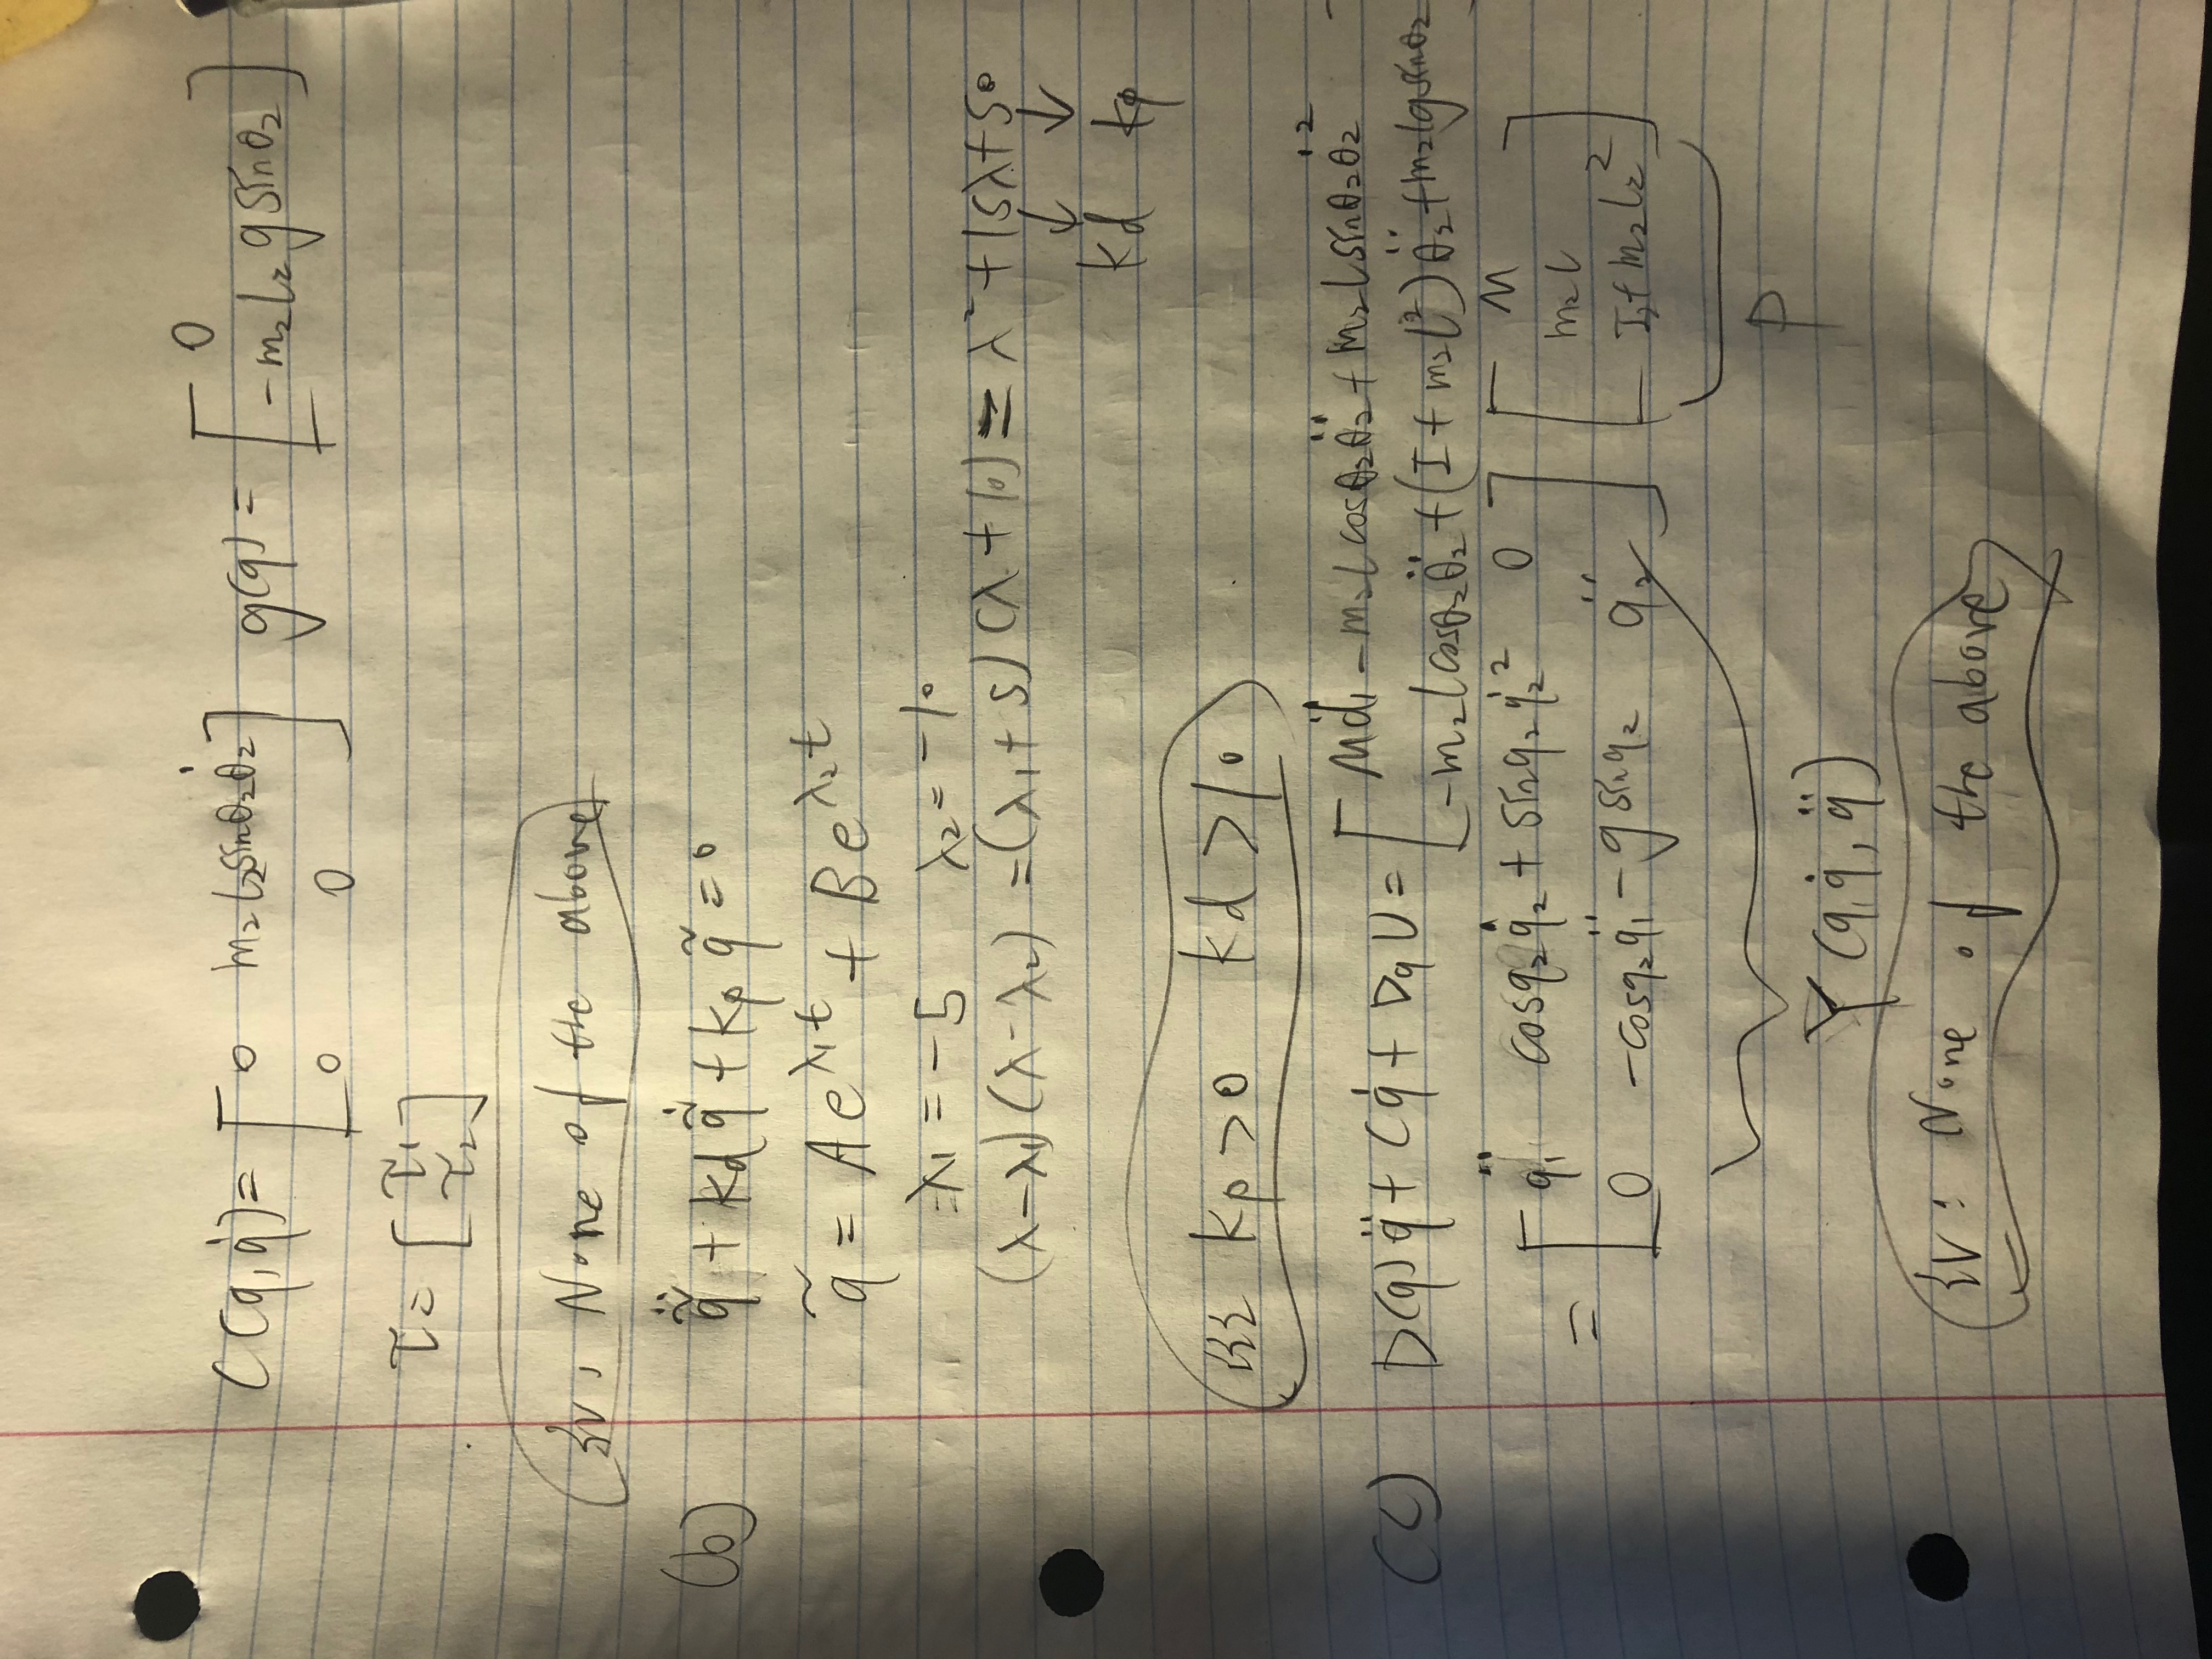 C(q,q̇) = [ 0 m₂l₂sinθ₂θ̇₂ ; 0 0 ] g(q) = [ 0 ; -m₂l₂gsinθ₂ ]
τ = [ τ₁ ; τ₂ ]
iv, None of the above
(b) q̃̈ + kd q̃̇ + kp q̃ = 0
q̃ = Ae^{λ₁t} + Be^{λ₂t}
λ₁ = -5 λ₂ = -10
(λ-λ₁)(λ-λ₂) = (λ₁+5)(λ+10) = λ²+15λ+50
↓ ↓
kd kp
iii kp>0 kd>10
(c) D(q)q̈ + Cq̇ + DqU = [ Md̈₁ - m₂lcosθ₂θ̈₂ + m₂lsinθ₂θ̇₂² ; -m₂lcosθ₂θ̈₂ + (I+m₂l²)θ̈₂ + m₂lgsinθ₂ ]
= [ q̈₁ cosq₂q̈₂ + sinq₂q̇₂² 0 ; 0 -cosq₂q̈₁ - gsinq₂ q̈₂ ] [ M ; m₂l ; I₂+m₂l₂² ]
P
Y(q,q̇,q̈)
iv: None of the above